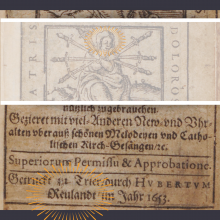 ATRIS
DOLORO
nützlich zugebrauchen
Gezieret mit viel Anderen New- und Vhr-
alten vberauß schönen Melodeyen und Catho-
lischen Kirch-Gesängen/ ꝛc.
Superiorum Permissu & Approbatione.
Getruckt zu Trier, durch HVBERTVM
Reulandt im Jahr 1653.